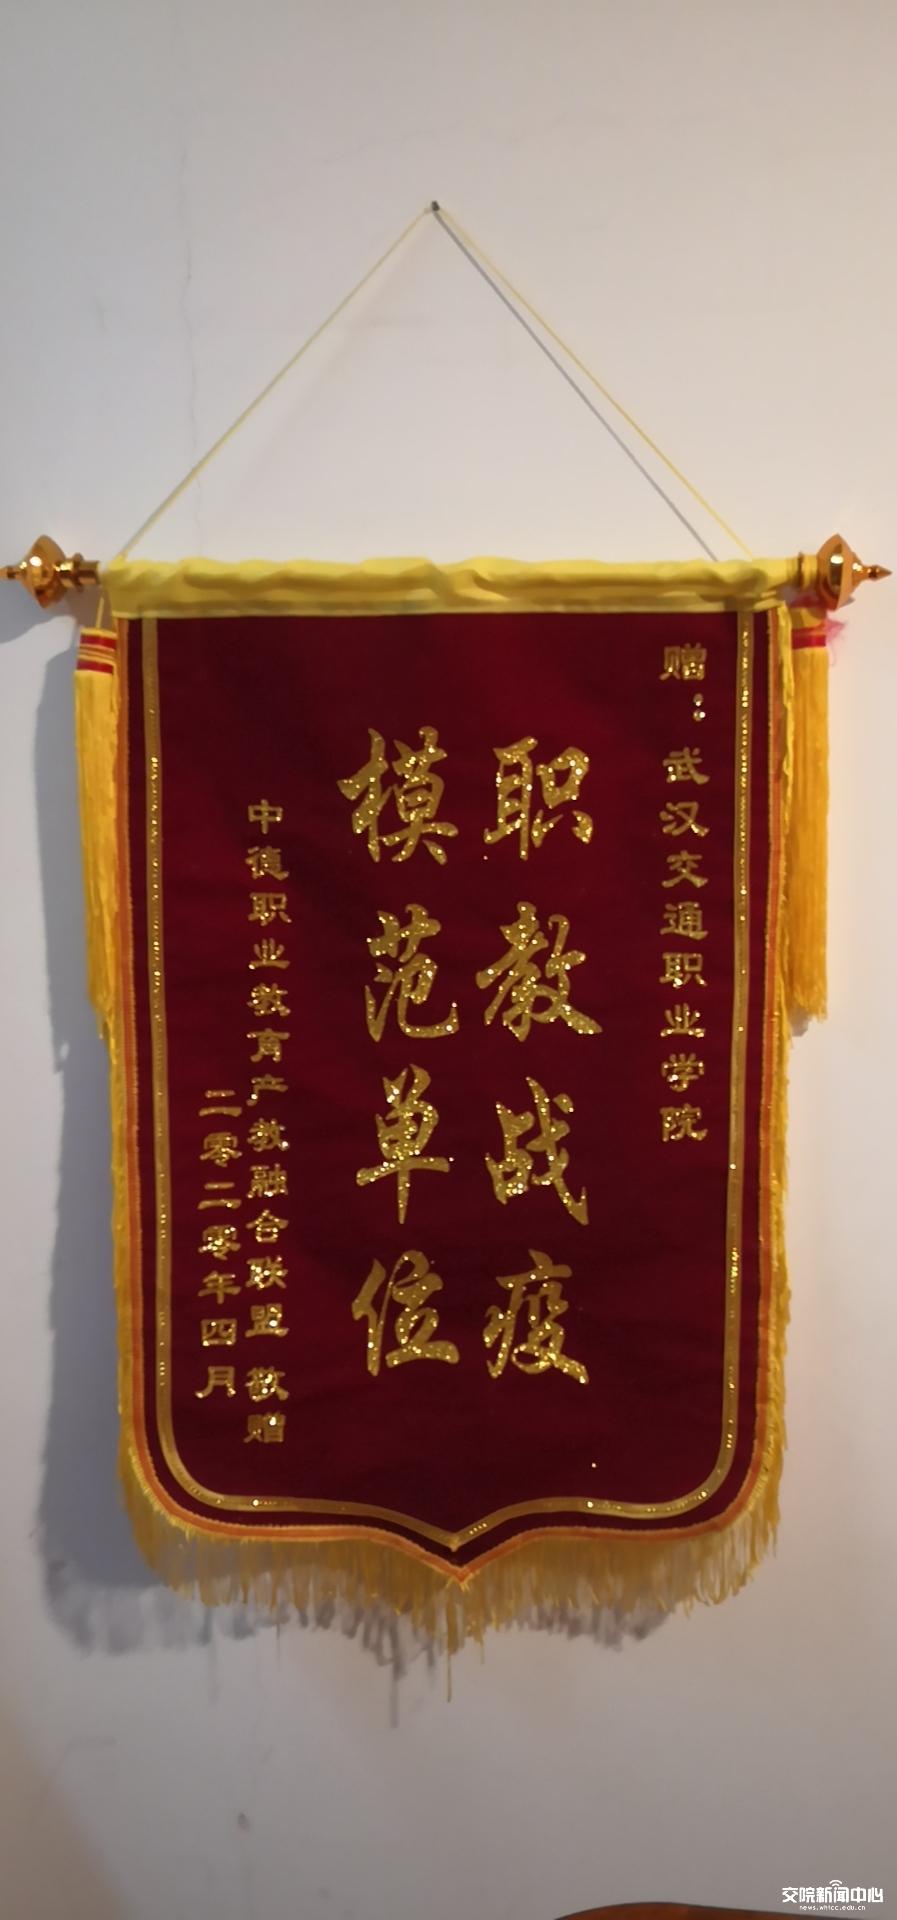 赠：武汉交通职业学院
职教战疫
模范单位
中德职业教育产教融合联盟 敬赠
二零二零年四月
交院新闻中心
news.whtcc.edu.cn